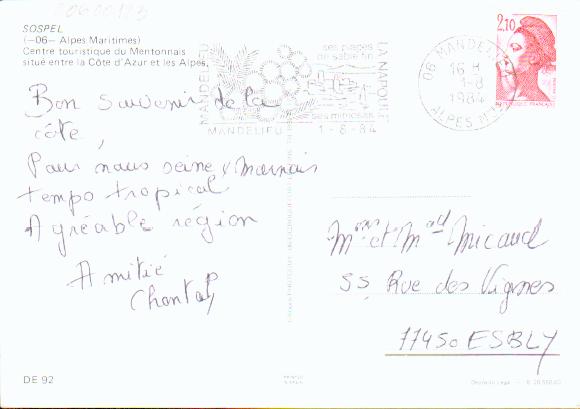 SOSPEL
(-06- Alpes Maritimes)
Centre touristique du Mentonnais
situé entre la Côte d'Azur et les Alpes.
Bon souvenir de la
côte,
Pour nous seine & Marnais
tempo tropical
Agréable région
Amitié
Chantal
MANDELIEU
ses plages
de sable fin
LA NAPOULE
ses mimosas
MANDELIEU 1-8-84
06 MANDELIEU
16 H
1-8
1984
ALPES MMES
2,10
Mons et Mad Micaud
55 Rue des Vignes
77450 ESBLY
DE 92